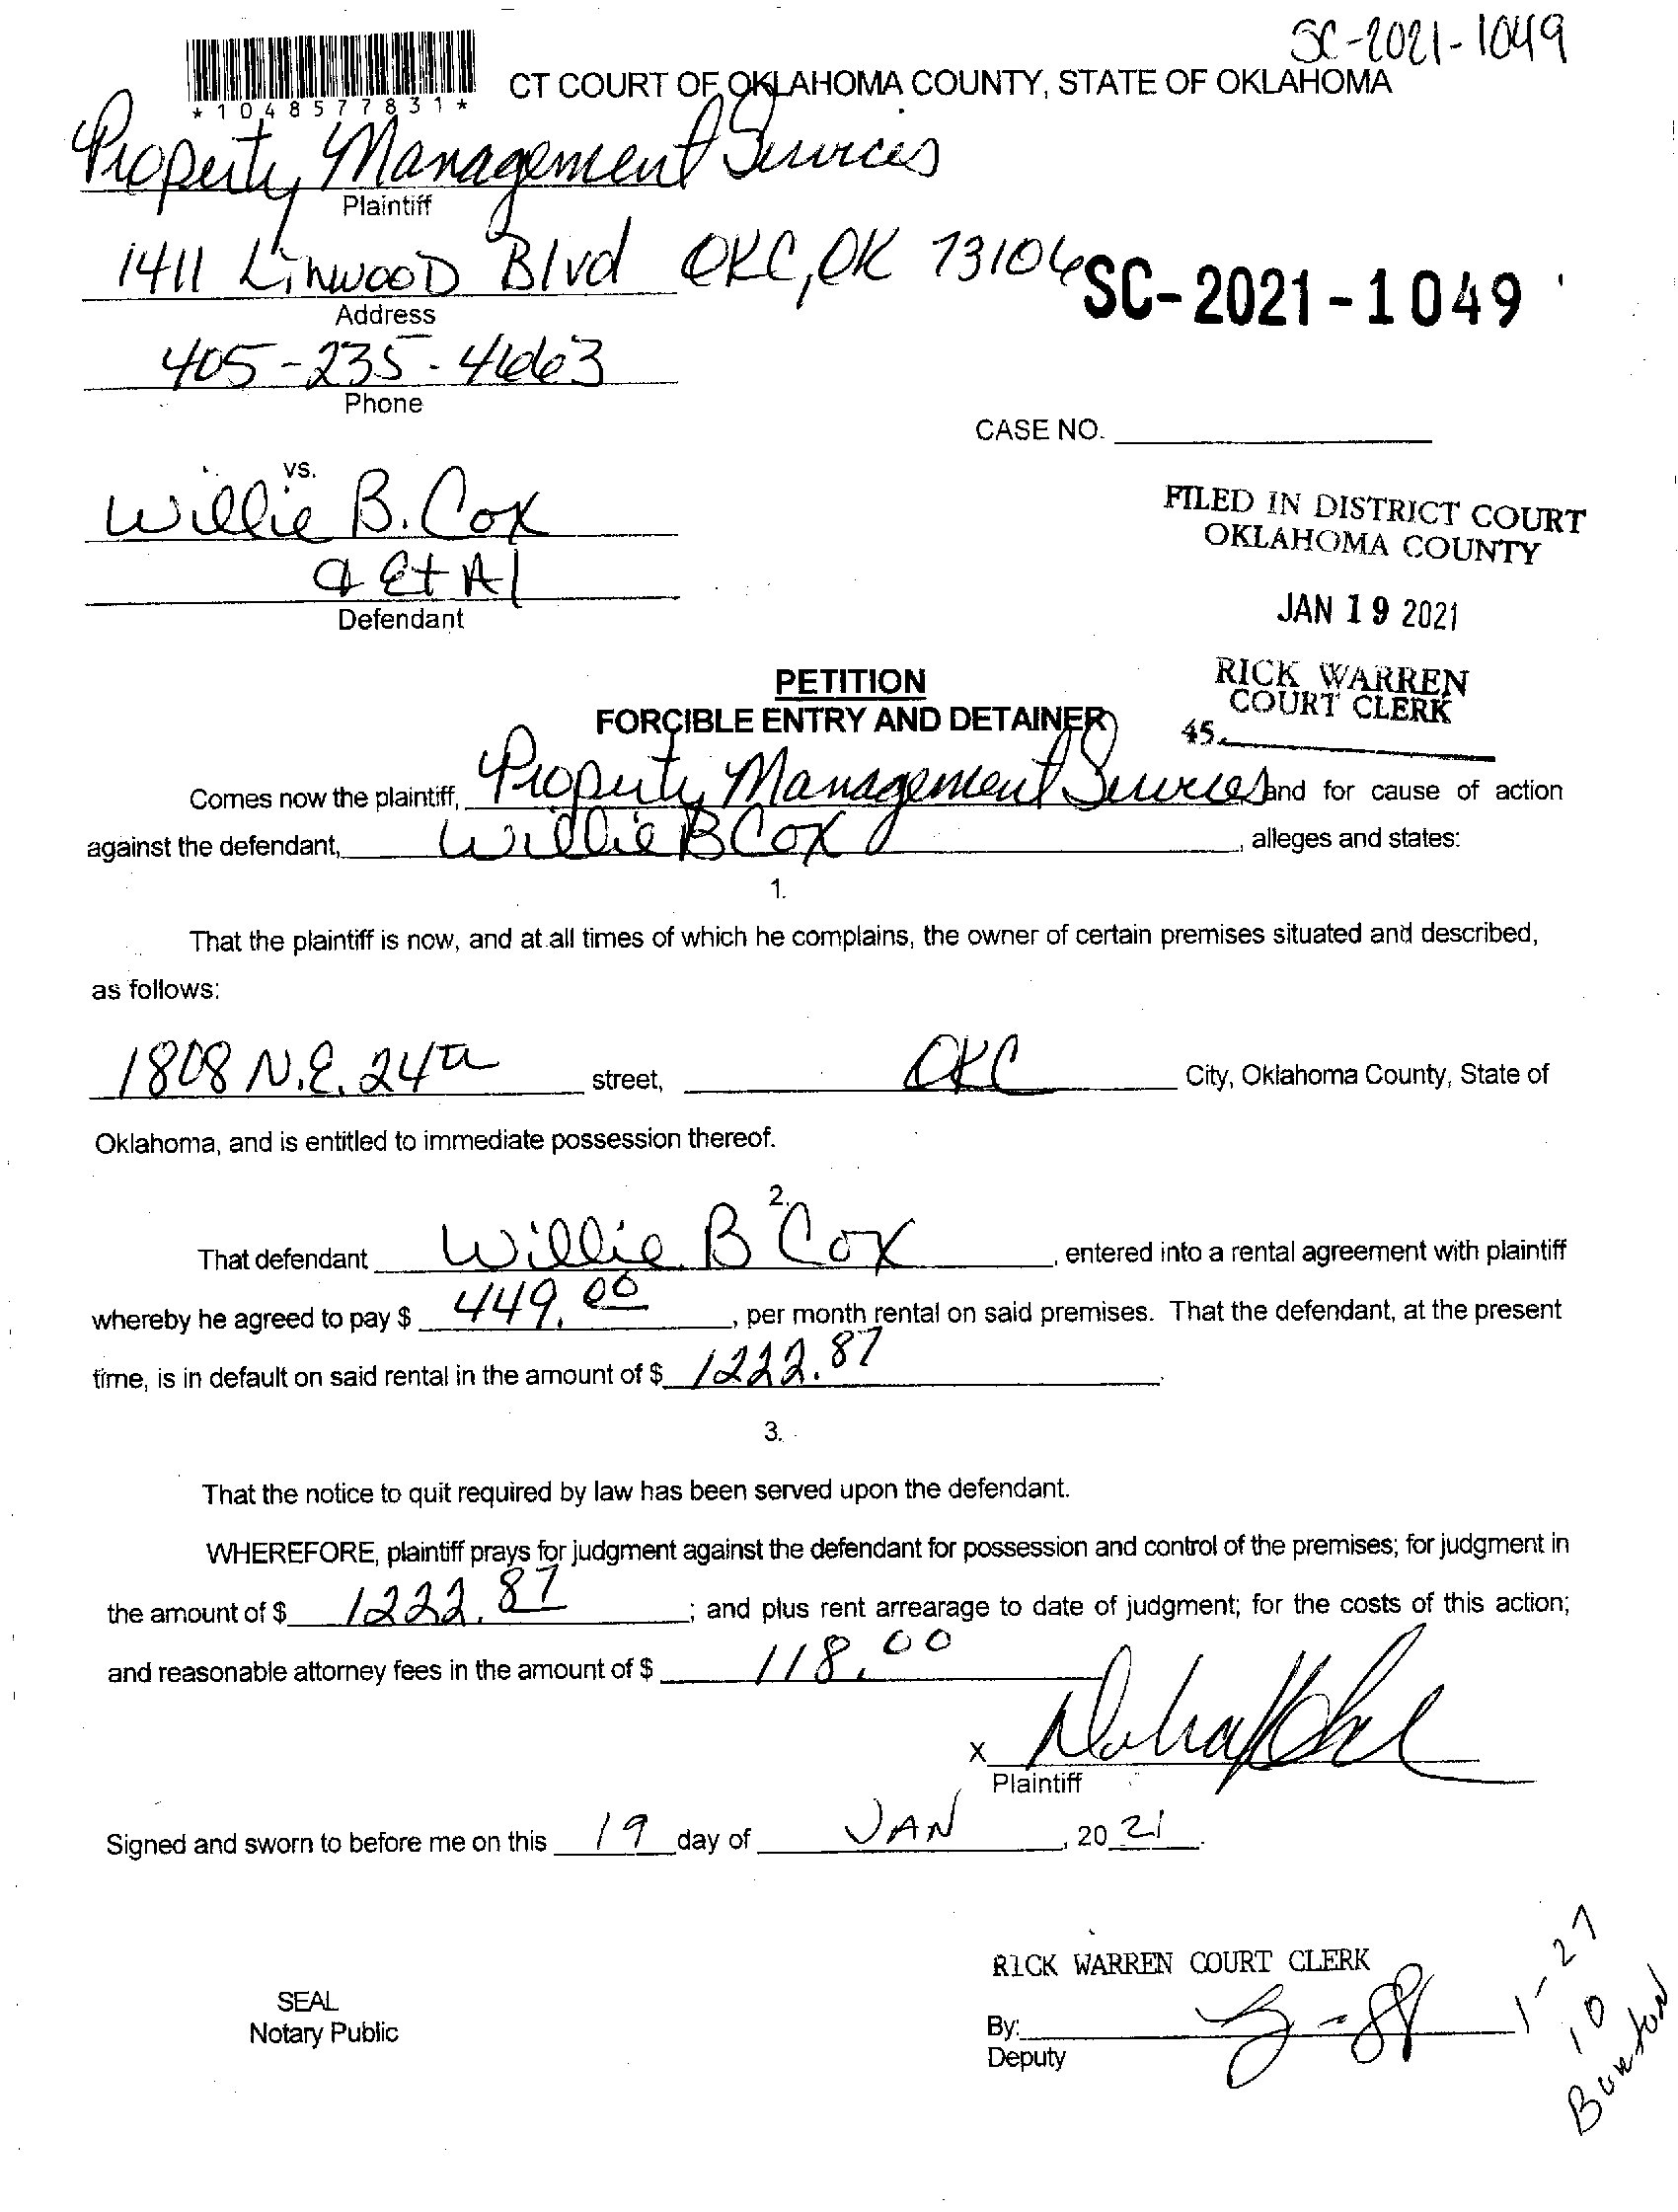 SC-2021-1049
*1048577831*
CT COURT OF OKLAHOMA COUNTY, STATE OF OKLAHOMA
Property Management Services
Plaintiff
1411 Linwood Blvd OKC, OK 73106
SC-2021-1049
Address
405-235-4663
Phone
CASE NO.
vs.
Willie B. Cox
& Et Al
Defendant
FILED IN DISTRICT COURT
OKLAHOMA COUNTY
JAN 19 2021
RICK WARREN
COURT CLERK
45
PETITION
FORCIBLE ENTRY AND DETAINER
Comes now the plaintiff, Property Management Services and for cause of action
against the defendant, Willie B Cox, alleges and states:
1.
That the plaintiff is now, and at all times of which he complains, the owner of certain premises situated and described,
as follows:
1808 N.E. 24th street, OKC City, Oklahoma County, State of
Oklahoma, and is entitled to immediate possession thereof.
2.
That defendant Willie B Cox, entered into a rental agreement with plaintiff
whereby he agreed to pay $ 449.00, per month rental on said premises. That the defendant, at the present
time, is in default on said rental in the amount of $ 1222.87.
3.
That the notice to quit required by law has been served upon the defendant.
WHEREFORE, plaintiff prays for judgment against the defendant for possession and control of the premises; for judgment in
the amount of $ 1222.87; and plus rent arrearage to date of judgment; for the costs of this action;
and reasonable attorney fees in the amount of $ 118.00
X
Plaintiff
Signed and sworn to before me on this 19 day of JAN, 2021.
RICK WARREN COURT CLERK
SEAL
Notary Public
By:
Deputy
1-27
10
Burton